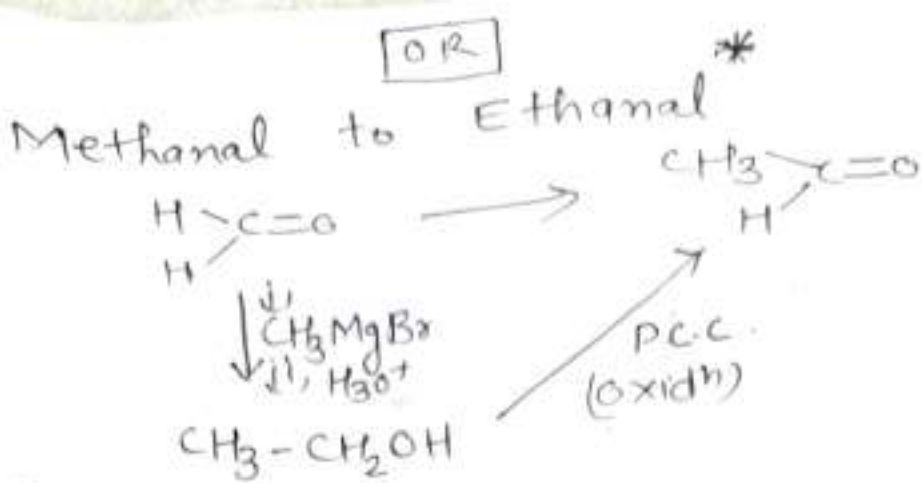 OR
Methanal to Ethanal*
H
H C=O
CH3
H C=O
i, CH3MgBr
ii, H3O+
P.C.C.
(oxidn)
CH3-CH2OH